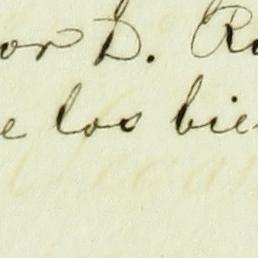 or D. R
e los bie